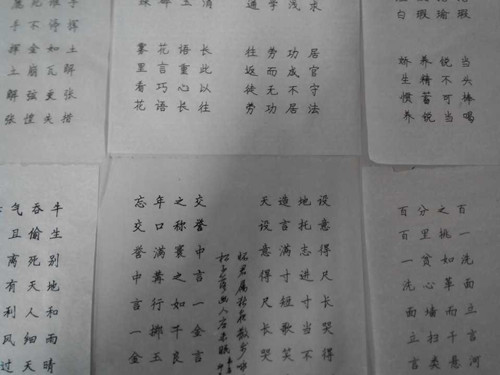 手不停挥
挥金如土
土崩瓦解
解弦更张
张惶失措
雾里看花
花言巧语
语重心长
长此以往
往返徒劳
劳而无功
功成不居
居官守法
娇生惯养
养精蓄锐
锐不可当
当头棒喝
气吞牛
且偷生
离死别
有天地
利人和
风细雨
过天晴
忘年之交
交口称誉
誉满寰中
中冓之言
言行如一
一掷千金
金玉良言
天造地设
设言托意
意满志得
得寸进尺
尺短寸长
长歌当哭
哭笑不得
百分之百
百里挑一
一贫如洗
洗心革面
面墙而立
立扫千言
言类悬河